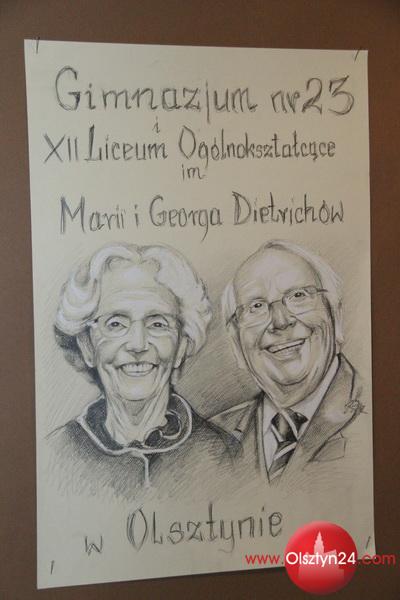 Gimnazjum nr 23
i
XII Liceum Ogólnokształcące
im
Marii i Georga Dietrichów
w Olsztynie
www.Olsztyn24.com